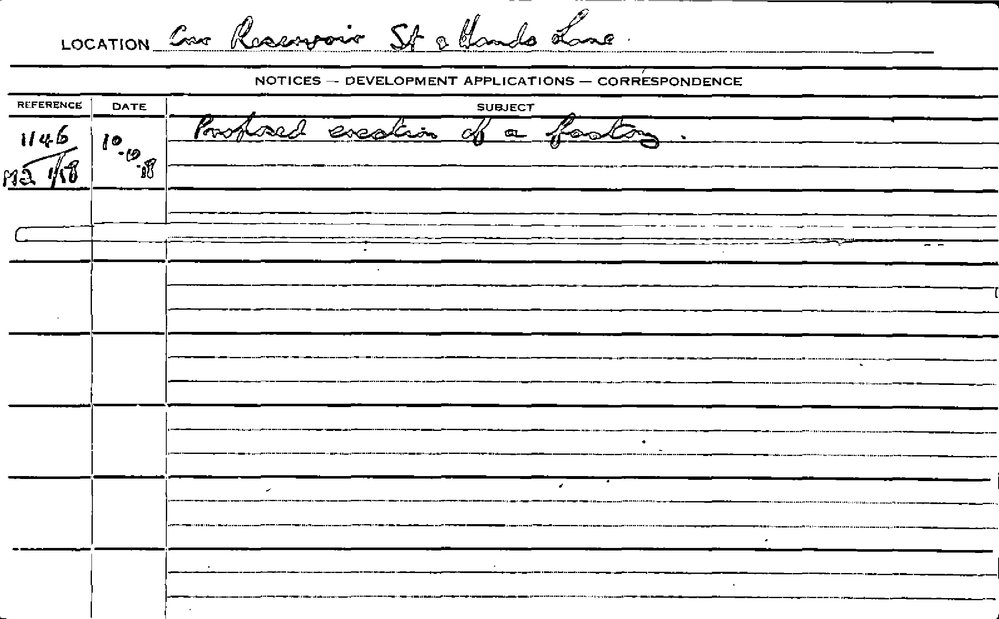 LOCATION Cnr Reservoir St & Hands Lane.
NOTICES — DEVELOPMENT APPLICATIONS — CORRESPONDENCE
REFERENCE DATE SUBJECT
1146 10 Proposed erection of a factory.
.10
1/18 .18